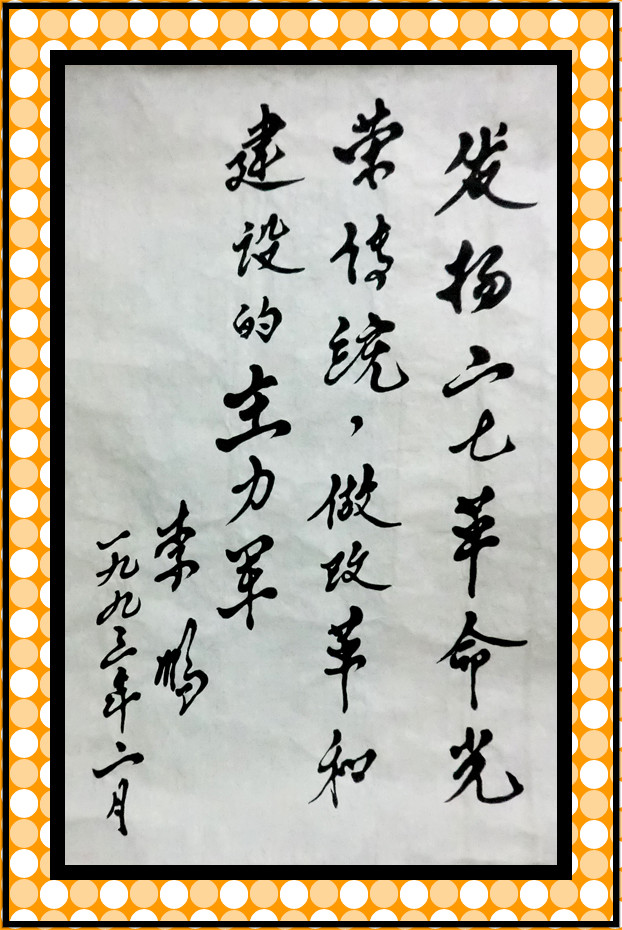 发扬二七革命光
荣传统，做改革和
建设的主力军
李鹏
一九九三年二月